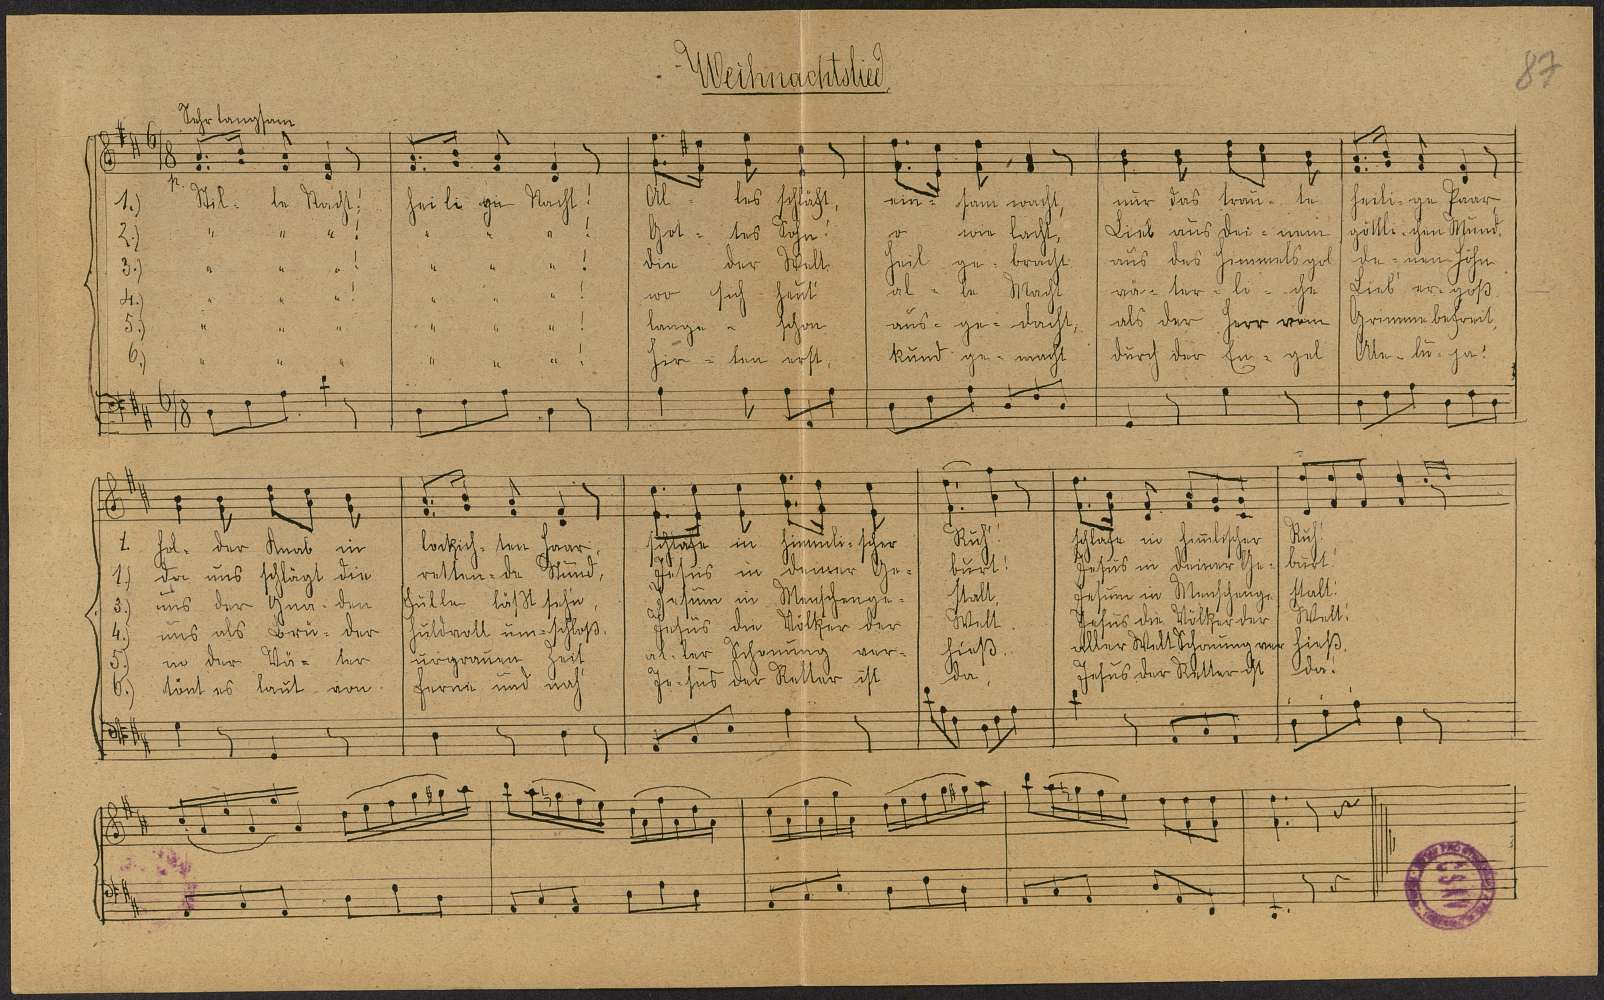 Weihnachtslied.
87
Sehr langsam
p.
1.) Stil- le Nacht! heili ge Nacht! Al- les schläft, ein- sam wacht, nur das trau- te heili- ge Paar
2.) " " " ! " " " ! Got- tes Sohn! o wie lacht, Lieb aus dei- nem göttli- chen Mund.
3.) " " " ! " " " ! die der Welt Heil ge- bracht aus des Himmels gol de- nen Höhn
4.) " " " ! " " " ! wo sich heut' al- le Macht vä- ter- li- che Lieb' er- goß.
5.) " " " " " " ! lange- schon aus- ge- dacht, als der Herr vom Grimme befreit,
6.) " " " " " " ! Hir- ten erst, kund ge- macht durch der En- gel Ale- lu- ja!
1 hol- der Knab in lockich- ten Haar, schlafe in himmli- scher Ruh! schlafe in himlischer Ruh!
da uns schlägt die retten- de Stund, Jesus in deiner Ge- burt! Jesus in deiner Ge- burt!
3.) uns der Gna- den Fülle läßt sehn, Jesum in Menschenge- stalt, Jesum in Menschenge stalt!
4.) uns als Brü- der huldvoll um- schloß. Jesus die Völker der Welt. Jesus die Völker der Welt!
5.) in der Vä- ter urgrauen Zeit al- ler Schonung ver- hieß. aller Welt Schonung ver hieß.
6.) tönt es laut von ferne und nah' Je- sus der Retter ist da, Jesus der Retter ist da!